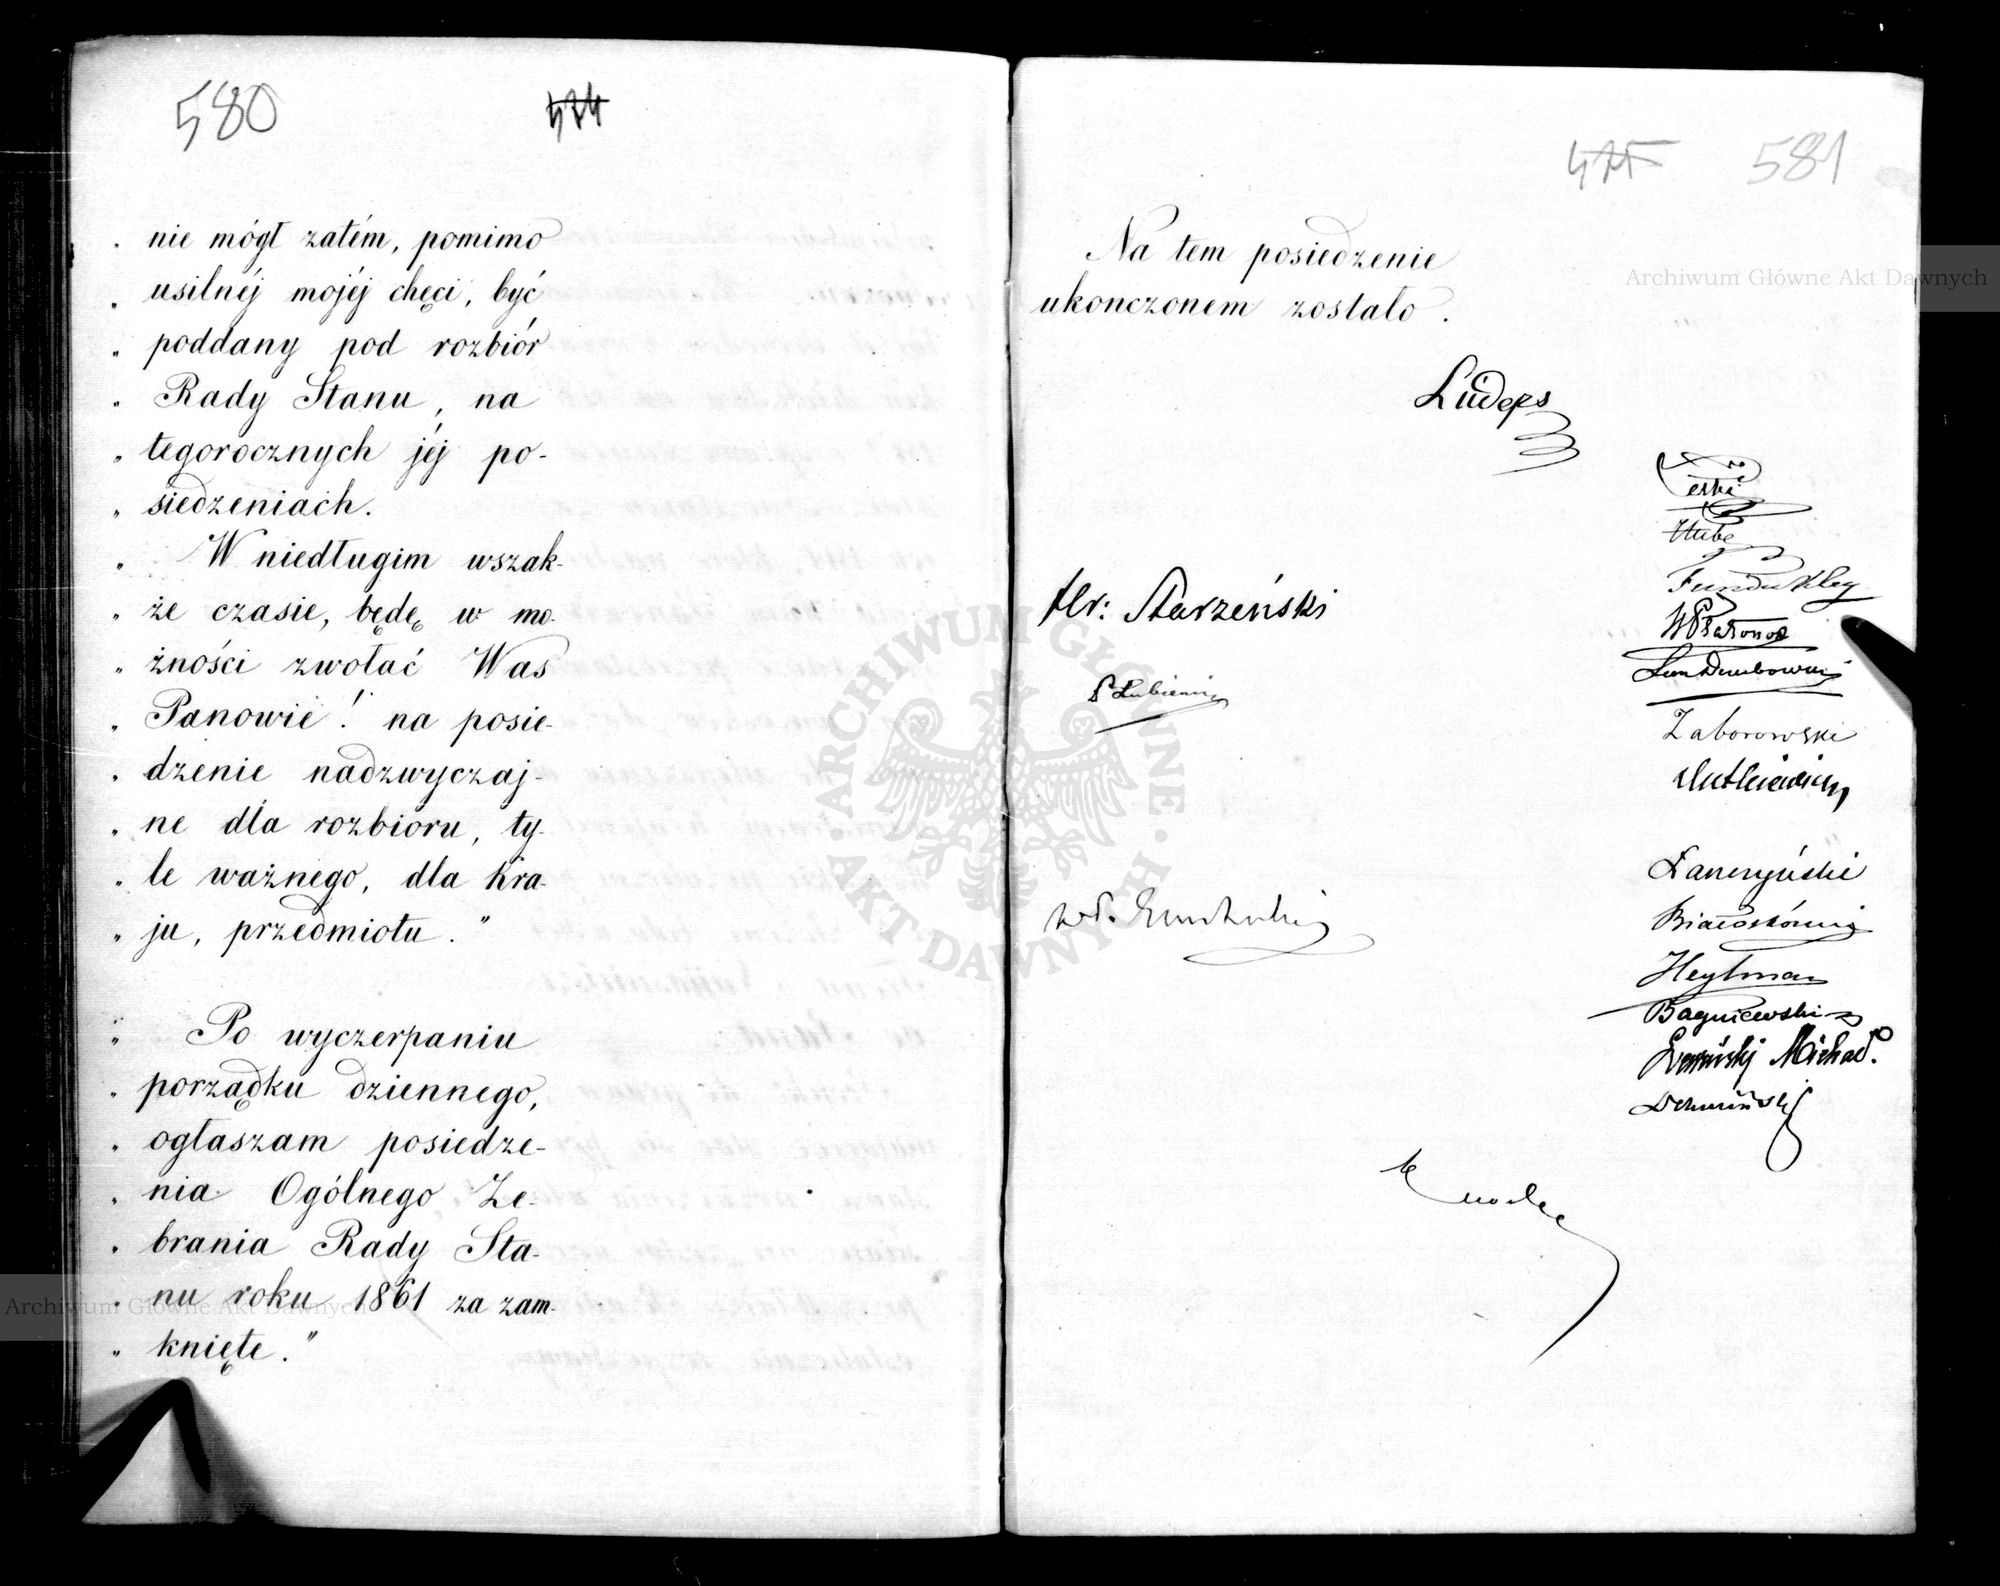 580
574
„ nie mógł zatém, pomimo
„ usilnéj mojéj chęci, być
„ poddany pod rozbiór
„ Rady Stanu, na
„ tegorocznych jéj po-
„ siedzeniach.
„ W niedługim wszak-
„ że czasie, będę w mo-
„ żności zwołać Was
„ Panowie! na posie-
„ dzenie nadzwyczaj-
„ ne dla rozbioru, ty-
„ le ważnego, dla Kra-
„ ju, przedmiotu."
„ Po wyczerpaniu
„ porządku dziennego,
„ ogłaszam posiedze-
„ nia Ogólnego Ze-
„ brania Rady Sta-
„ nu roku 1861 za zam-
„ knięte."
575 581
Na tem posiedzenie
ukonczonem zostało.
Lüders
Hube
Fundukley
Hr: Starzeński
Łubieński
Zaborowski
Białoskórski
Heylman
Bagniewski
Michał.
Archiwum Główne Akt Dawnych
Archiwum Główne Akt Dawnych
ARCHIWUM GŁÓWNE
AKT DAWNYCH